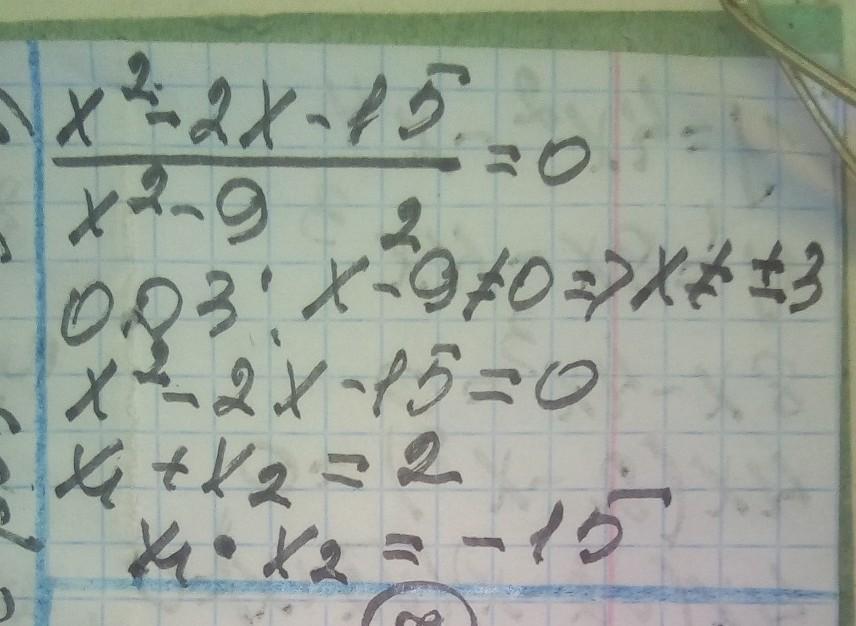 x² - 2x - 15
/ x² - 9 = 0
ОДЗ: x² - 9 ≠ 0 => x ≠ ±3
x² - 2x - 15 = 0
x₁ + x₂ = 2
x₁ • x₂ = -15